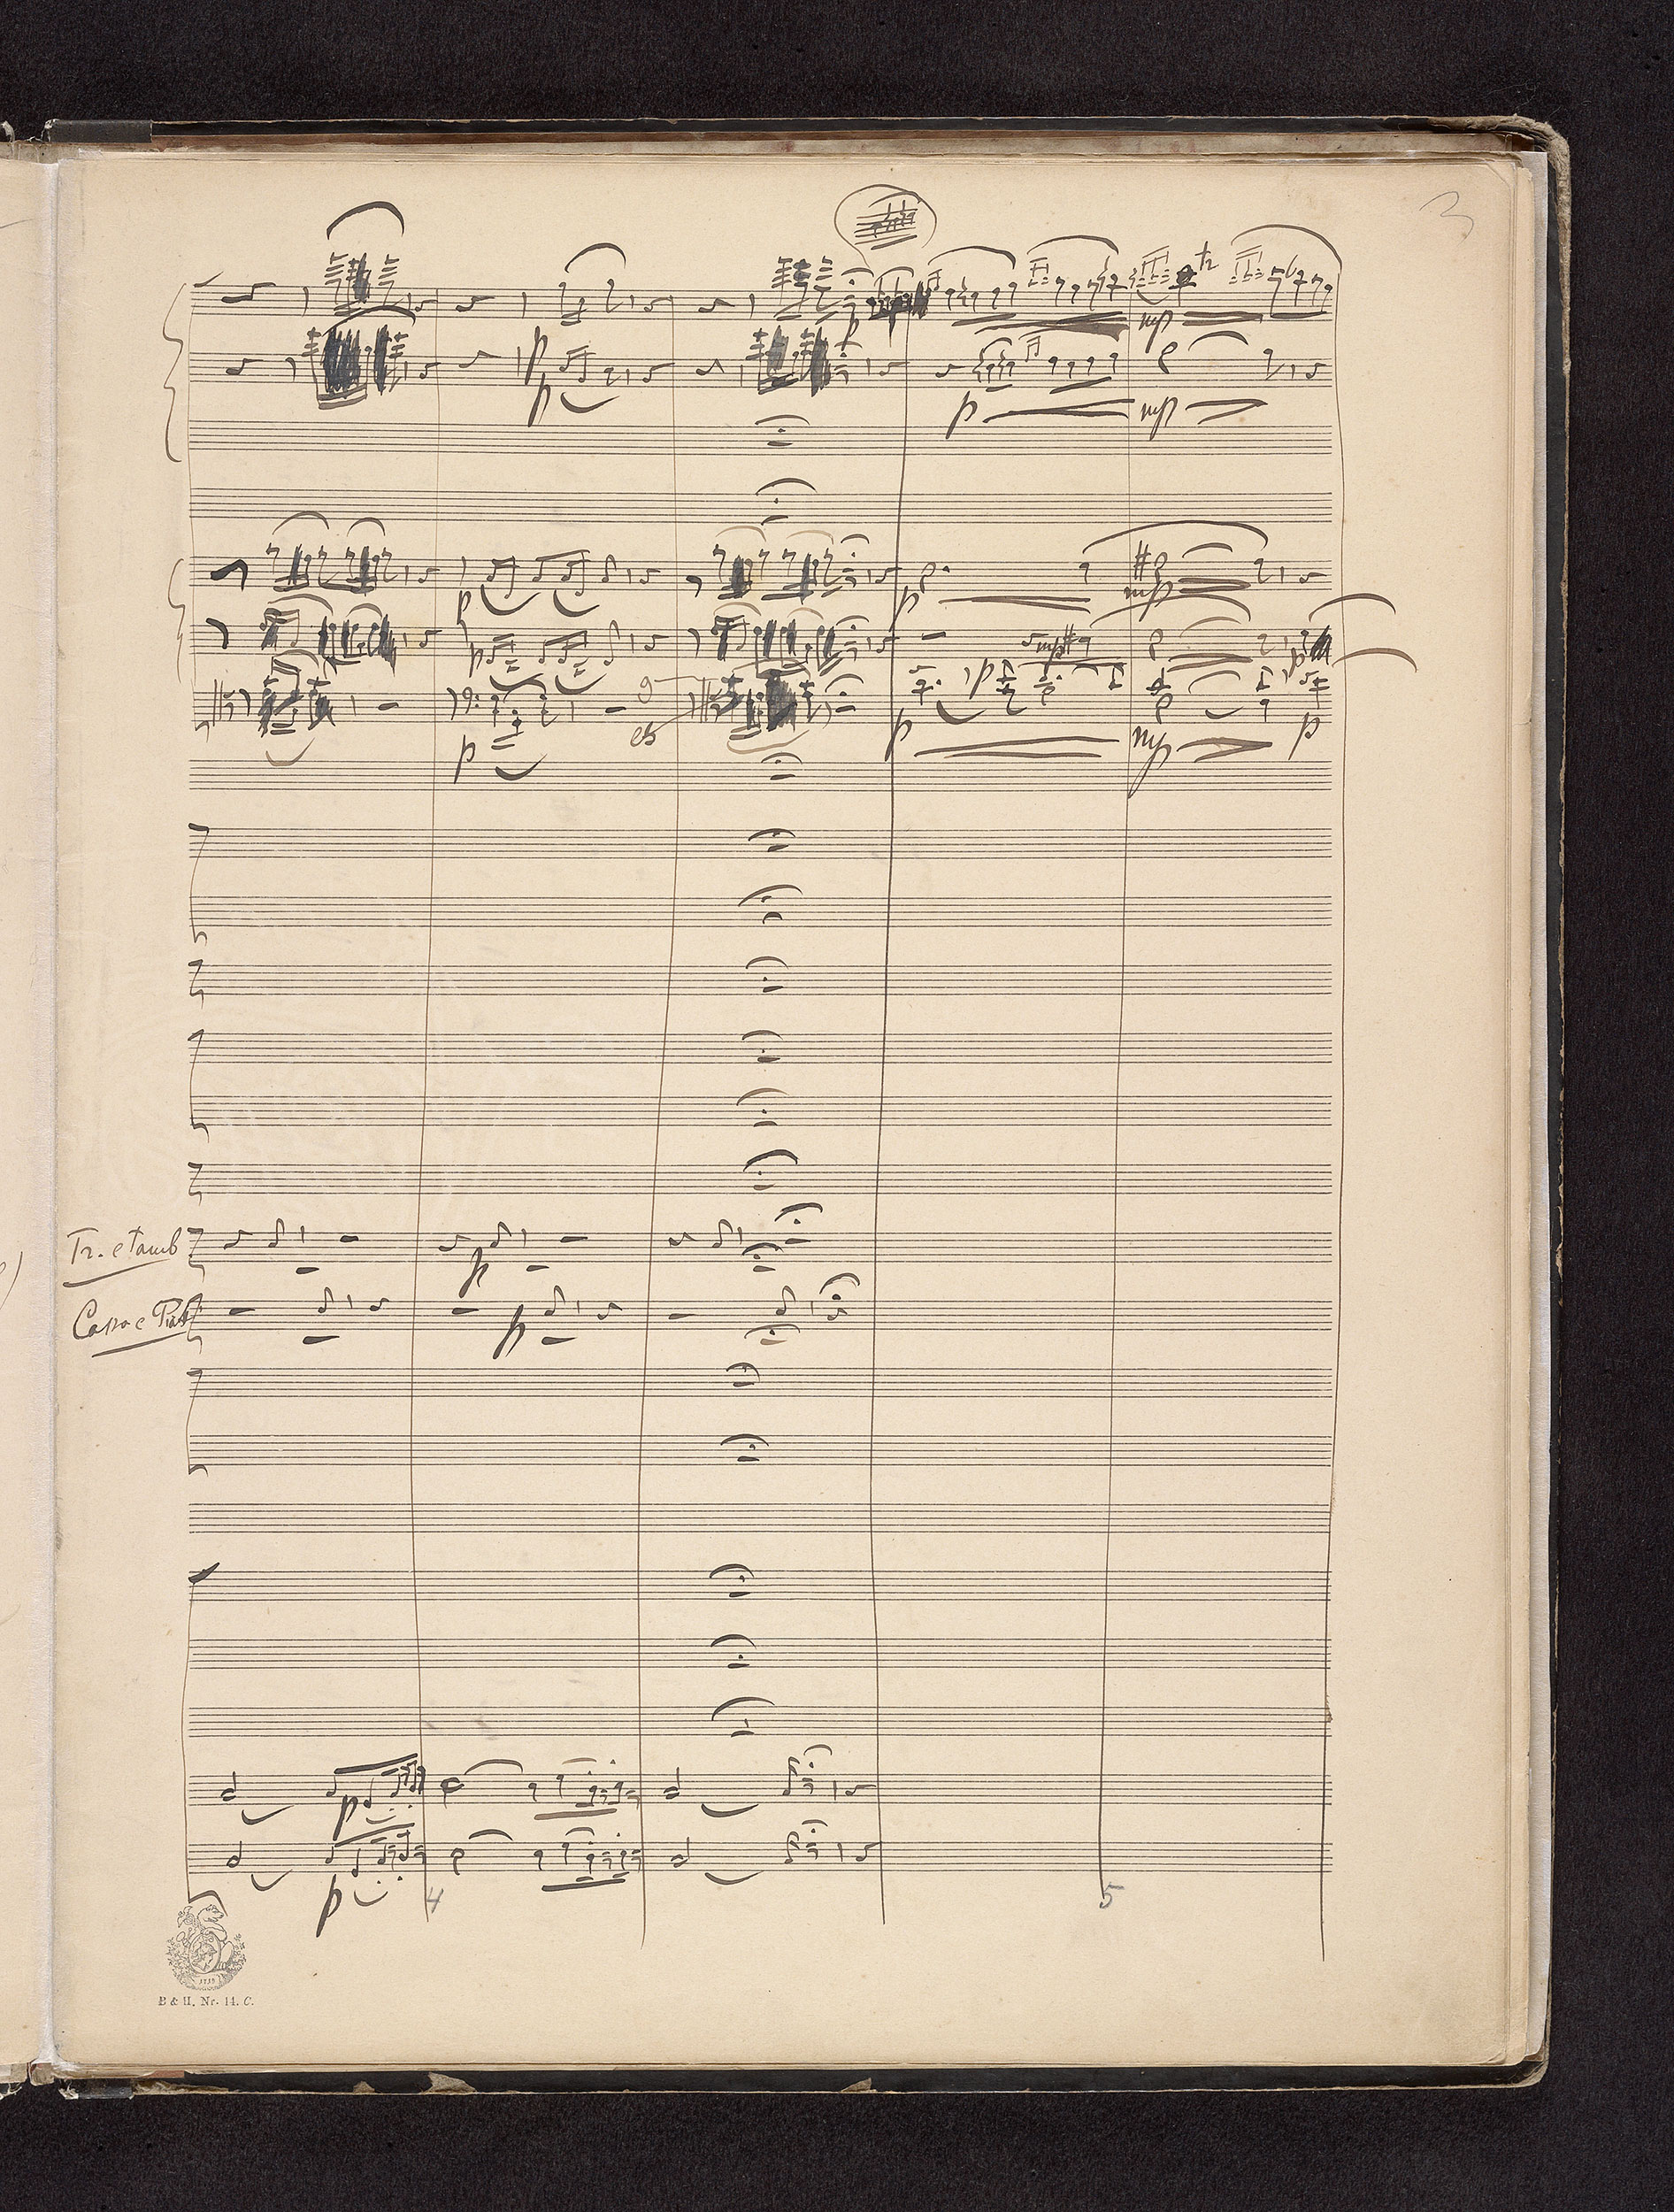 3
tr
mp
p
p
p
mp
p
p
mp
mp
p
p
p
g
es
p
p
mp
p
Tr. e Tamb
p
Cassa e Piatti
p
p
p
4
5
1719
B & H. Nr. 14. C.